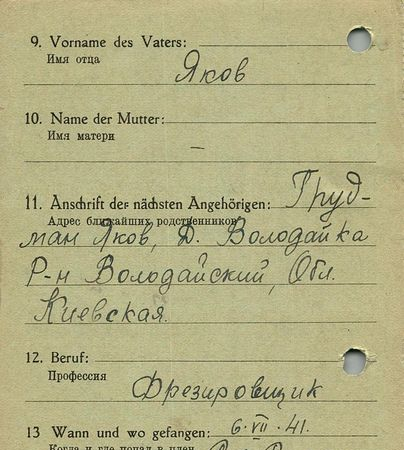 9. Vorname des Vaters:
Имя отца
Яков
10. Name der Mutter:
Имя матери
–
11. Anschrift der nächsten Angehörigen: Груд-
Адрес ближайших родственников
ман Яков, Д. Володайка
Р-н Володайский, Обл.
Киевская.
12. Beruf:
Профессия
Фрезировщик
13 Wann und wo gefangen: 6·VII·41.
Когда и где попал в плен